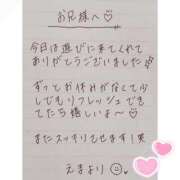 お兄様へ♡
今日は遊びに来てくれて
ありがとうございました
ずっとお休みがなくて少
しでもリフレッシュでき
てたら嬉しいよ〜♡
またスッキリさせます！笑
えまより☺